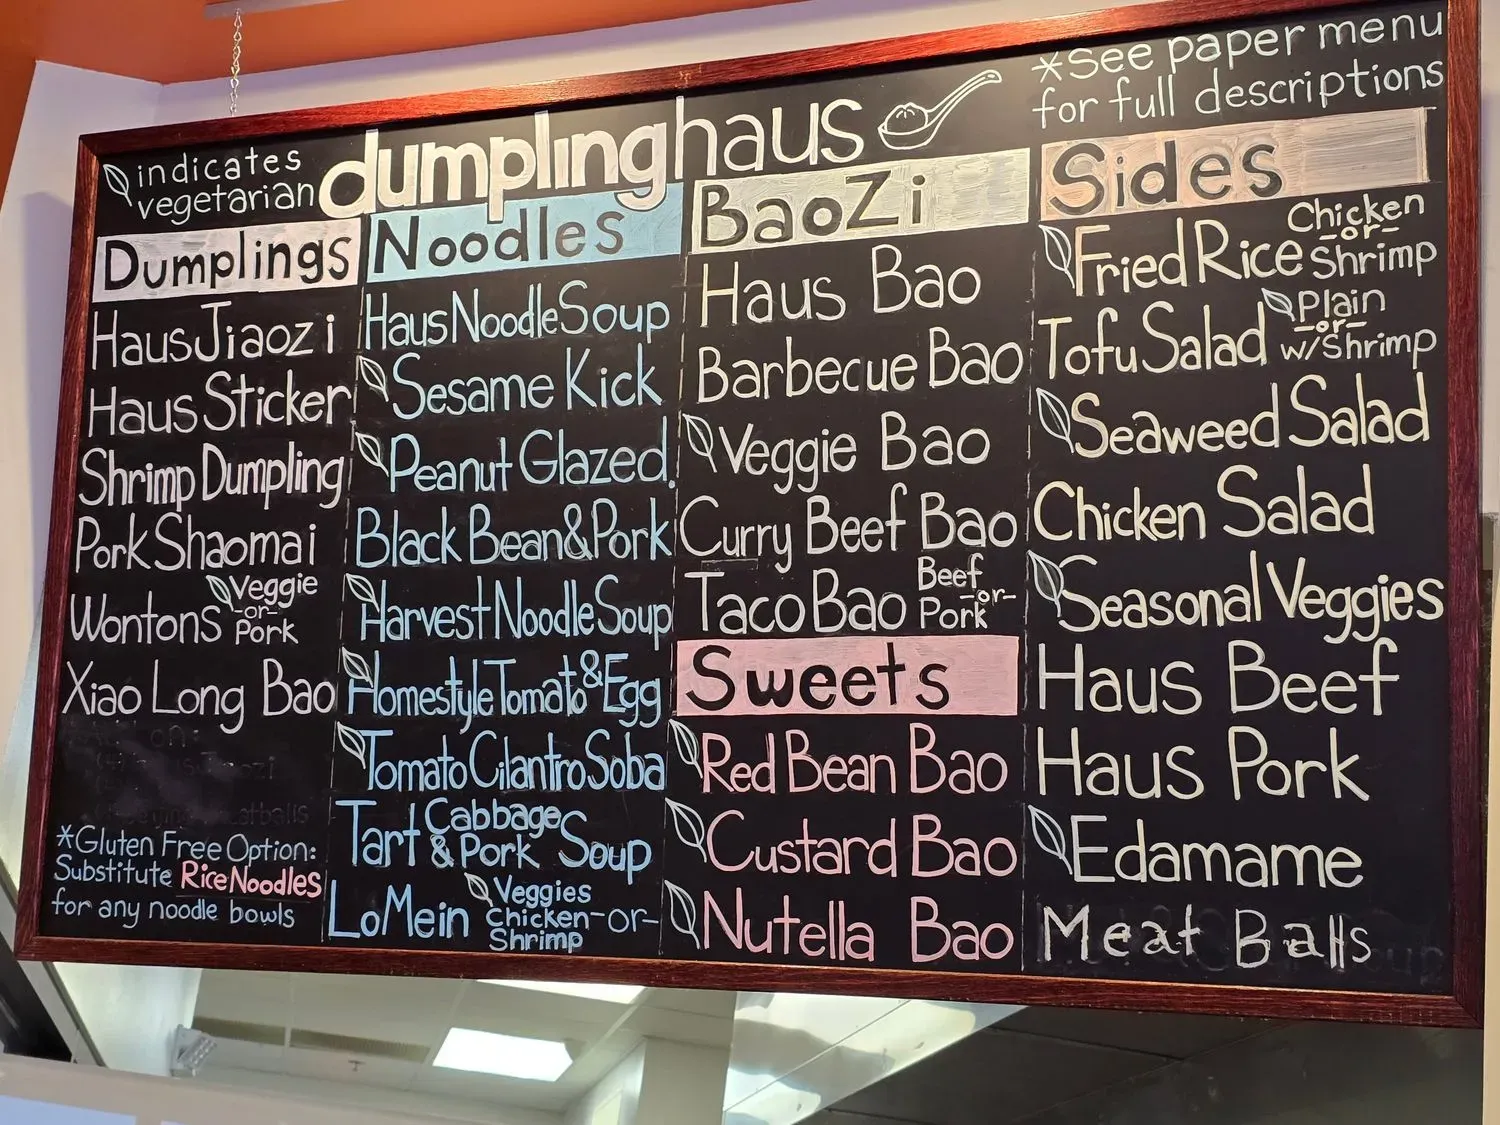 indicates
vegetarian
dumplinghaus
*See paper menu
for full descriptions
Dumplings
Haus Jiaozi
Haus Sticker
Shrimp Dumpling
Pork Shaomai
Wontons Veggie
-or-
Pork
Xiao Long Bao
*Gluten Free Option:
Substitute Rice Noodles
for any noodle bowls
Noodles
Haus Noodle Soup
Sesame Kick
Peanut Glazed
Black Bean & Pork
Harvest Noodle Soup
Homestyle Tomato & Egg
Tomato Cilantro Soba
Tart Cabbage & Pork Soup
Lo Mein Veggies
Chicken -or-
Shrimp
BaoZi
Haus Bao
Barbecue Bao
Veggie Bao
Curry Beef Bao
Taco Bao Beef
-or-
Pork
Sweets
Red Bean Bao
Custard Bao
Nutella Bao
Sides
Fried Rice Chicken
-or-
Shrimp
Tofu Salad Plain
-or-
w/Shrimp
Seaweed Salad
Chicken Salad
Seasonal Veggies
Haus Beef
Haus Pork
Edamame
Meat Balls